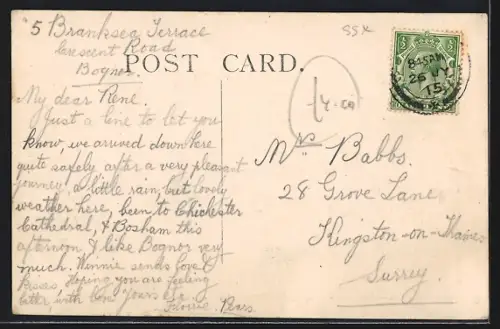 5 Branksea Terrace
Crescent Road
Bognor.
POST CARD.
My dear Rene.
Just a line to let you
know, we arrived down here
quite safely after a very pleasant
journey, a little rain, but lovely
weather here, been to Chichester
Cathedral, & Bosham this
afternoon & like Bognor very
much. Winnie sends love &
kisses. Hoping you are feeling
better, with love Yours
SSX
£4.00
8.45AM
26 JY
15
Mrs Babbs.
28 Grove Lane
Kingston-on-Thames
Surrey.